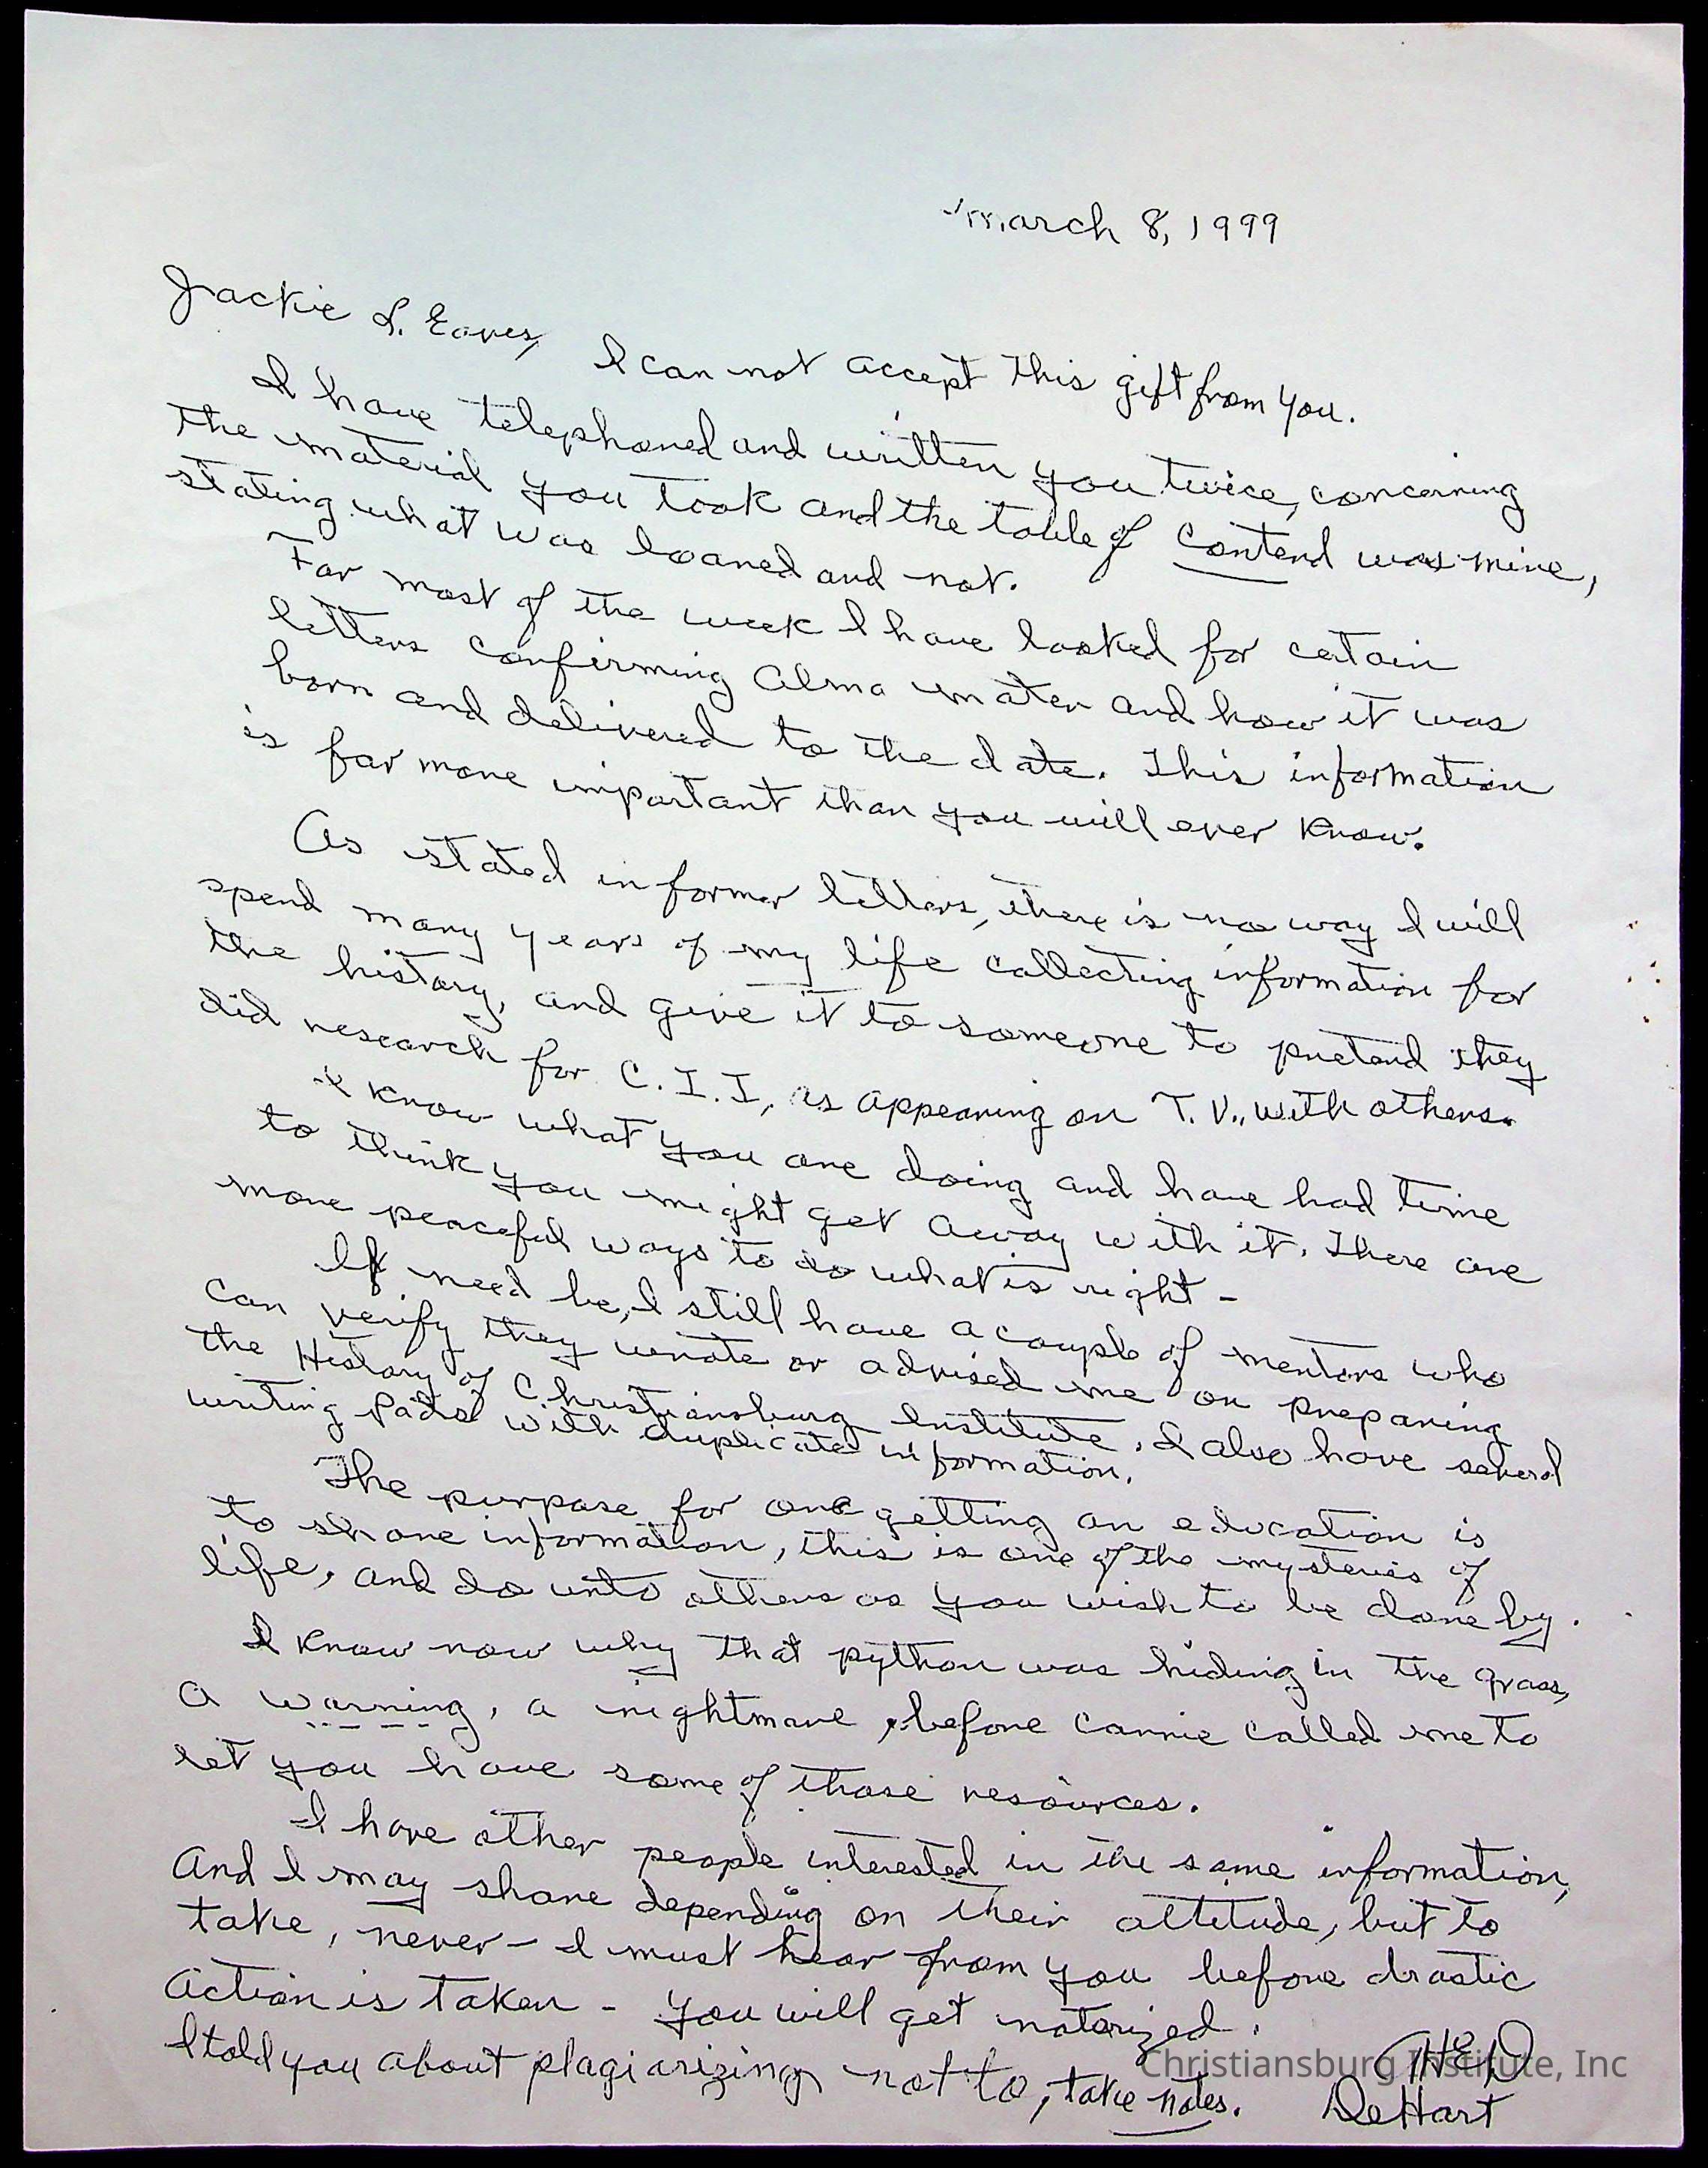 March 8, 1999
Jackie L. Eaves,
I can not accept this gift from you.
I have telephoned and written you twice, concerning
the material you took and the table of contend was mine,
stating what was loaned and not.
For most of the week I have looked for certain
letters confirming Alma mater and how it was
born and delivered to the date. This information
is far more important than you will ever know.
As stated in former letters, there is no way I will
spend many years of my life collecting information for
the history, and give it to someone to pretend they
did research for C.I.I, as appearing on T.V., with others.
I know what you are doing and have had time
to think you might get away with it. There are
more peaceful ways to do what is right -
If need be, I still have a couple of mentors who
can verify they wrote or advised me on preparing
the History of Christiansburg Institute. I also have several
writing pads with duplicated information.
The purpose for one getting an education is
to share information, this is one of the mysteries of
life, and do unto others as you wish to be done by.
I know now why that python was hiding in the grass,
a warning, a nightmare, before Cannie called me to
let you have some of those resources.
I have other people interested in the same information,
And I may share depending on their attitude, but to
take, never - I must hear from you before drastic
action is taken - you will get notorized.
I told you about plagiarizing not to, take notes.
AHED
DeHart
Christiansburg Institute, Inc